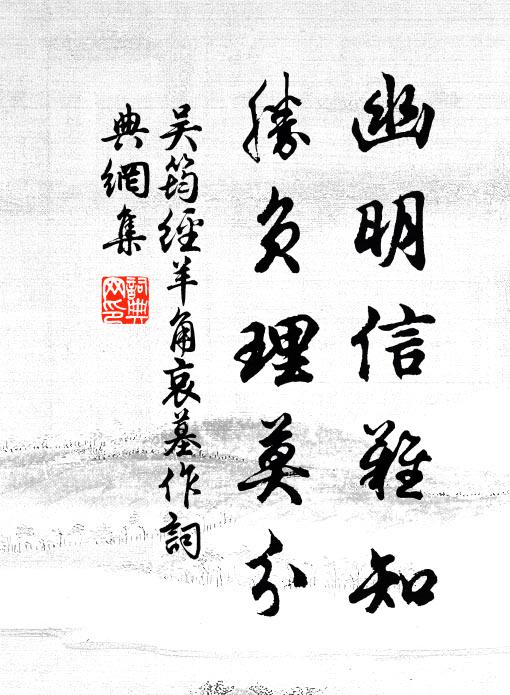 幽明信難知
勝負理莫分
吳筠經羊角哀墓作詞
典網集
詞典
网印